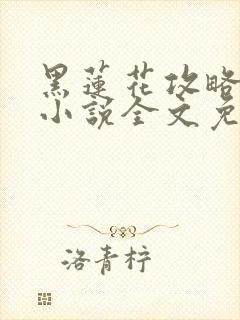 黑蓮花攻略
小說全文免
洛青柠